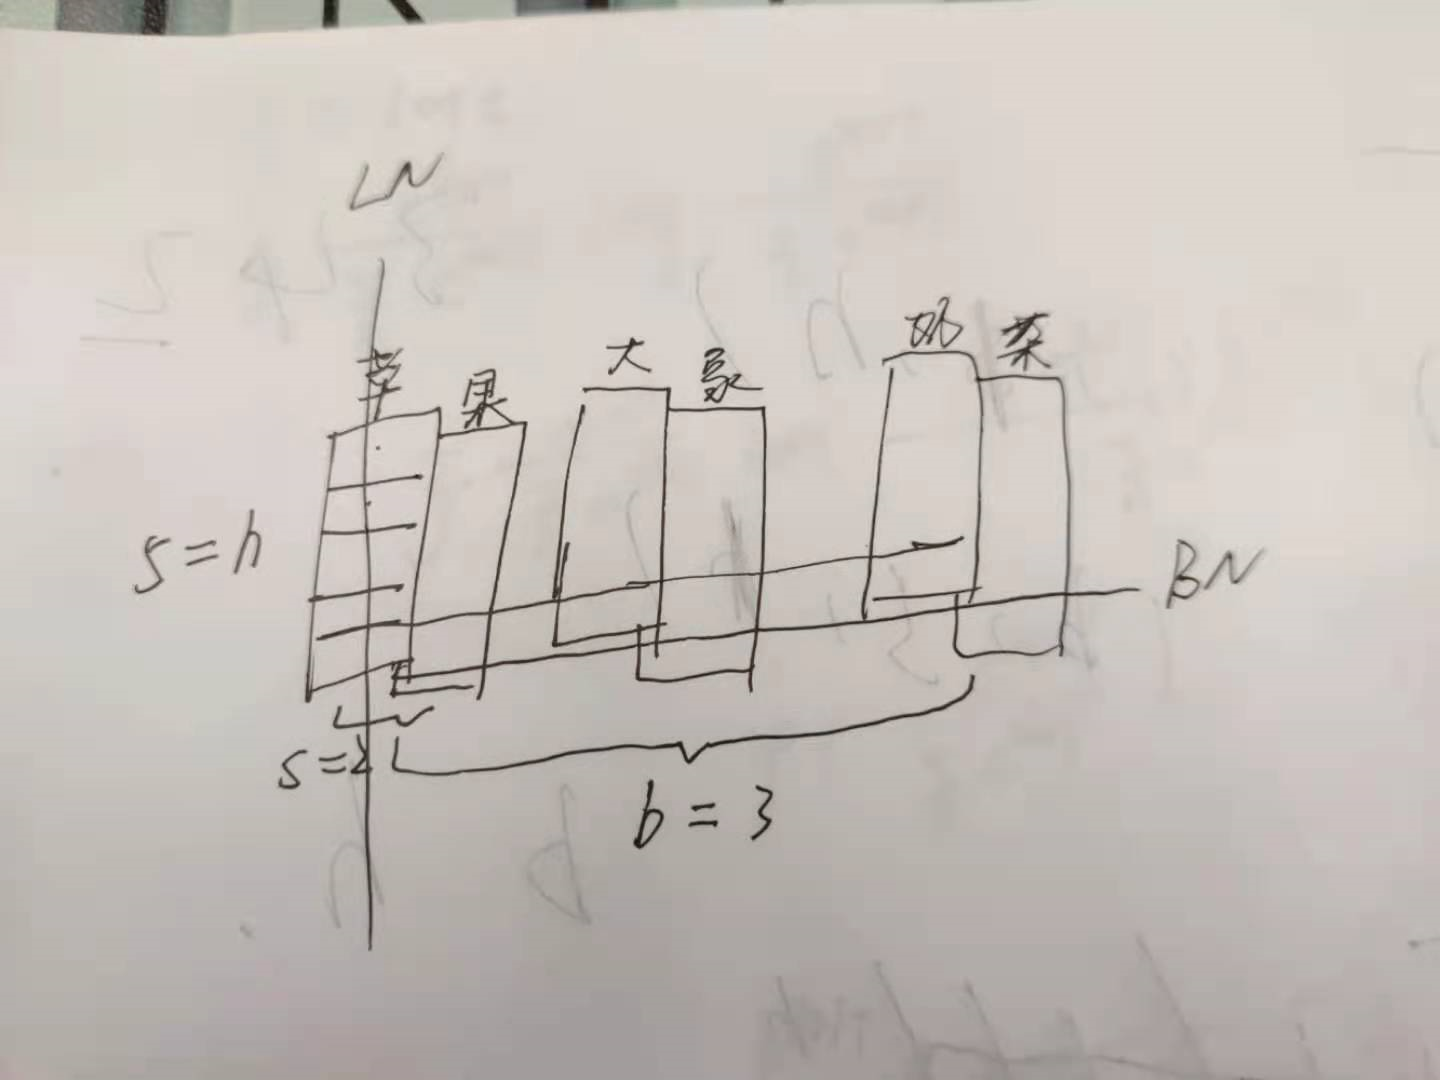 LN
苹 果 大 象 奶 茶
S=h
BN
S=2
b=3